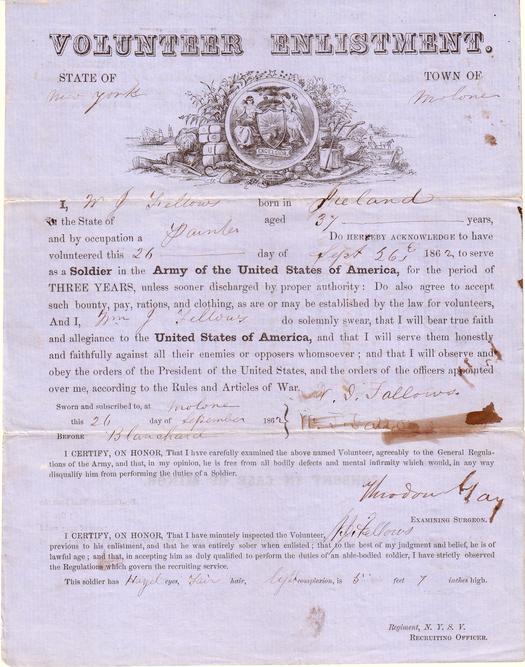 VOLUNTEER ENLISTMENT.
STATE OF TOWN OF
New York Molone
EXCELSIOR
I, W J Fellows born in Ireland
In the State of aged 37 years,
and by occupation a Painter Do HEREBY ACKNOWLEDGE to have
volunteered this 26 day of Sept 26 1862, to serve
as a Soldier in the Army of the United States of America, for the period of
THREE YEARS, unless sooner discharged by proper authority: Do also agree to accept
such bounty, pay, rations, and clothing, as are or may be established by the law for volunteers,
And I, Wm J Fellows do solemnly swear, that I will bear true faith
and allegiance to the United States of America, and that I will serve them honestly
and faithfully against all their enemies or opposers whomsoever; and that I will observe and
obey the orders of the President of the United States, and the orders of the officers appointed
over me, according to the Rules and Articles of War.
W. J. Fallows
Sworn and subscribed to, at Molone
this 26 day of September 1862
BEFORE Blanchard
I CERTIFY, ON HONOR, That I have carefully examined the above named Volunteer, agreeably to the General Regula-
tions of the Army, and that, in my opinion, he is free from all bodily defects and mental infirmity which would, in any way
disqualify him from performing the duties of a Soldier.
Theodore Gay
EXAMINING SURGEON.
I CERTIFY, ON HONOR, That I have minutely inspected the Volunteer, Fellows
previous to his enlistment, and that he was entirely sober when enlisted; that to the best of my judgment and belief, he is of
lawful age; and that, in accepting him as duly qualified to perform the duties of an able-bodied soldier, I have strictly observed
the Regulations which govern the recruiting service.
This soldier has Hazel eyes, Fair hair, light complexion, is 5 feet 7 inches high.
Regiment, N. Y. S. V.
RECRUITING OFFICER.